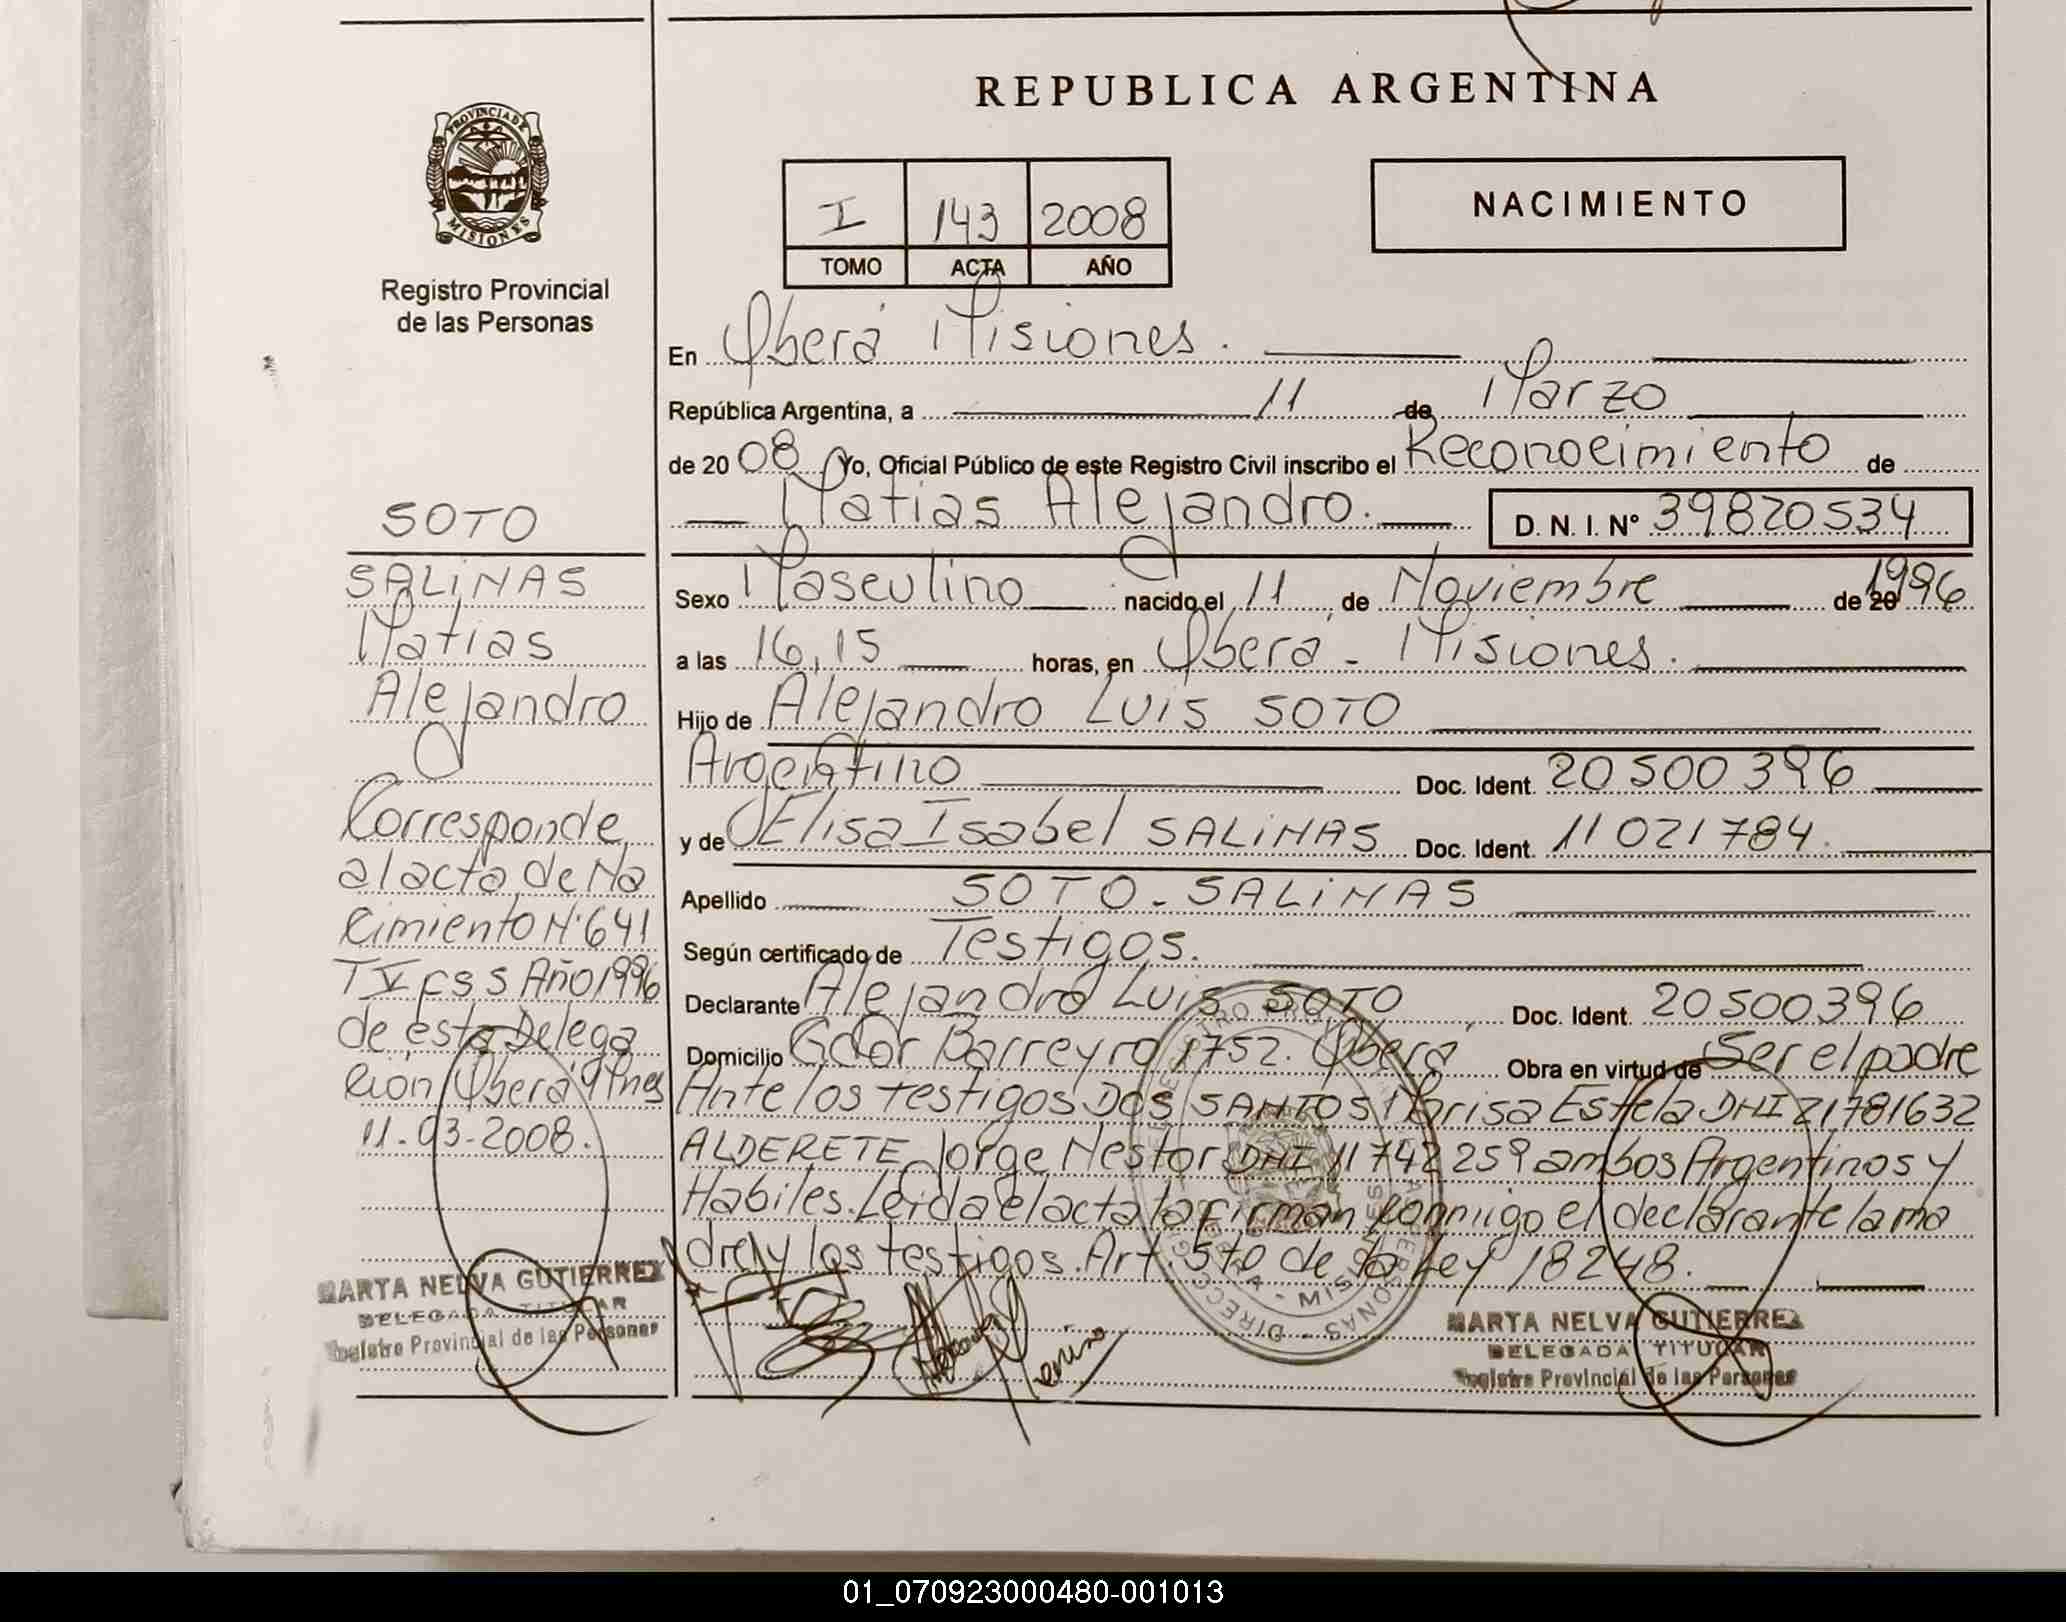 REPUBLICA ARGENTINA
PROVINCIA DE
MISIONES
Registro Provincial
de las Personas
I 143 2008
TOMO ACTA AÑO
NACIMIENTO
En Oberá Misiones.
República Argentina, a 11 de Marzo
de 20 08 Yo, Oficial Público de este Registro Civil inscribo el Reconocimiento de
Matias Alejandro. D. N. I. Nº 39820534
Sexo Masculino nacido el 11 de Noviembre de 20 1996
a las 16,15 horas, en Oberá - Misiones.
Hijo de Alejandro Luis SOTO
Argentino Doc. Ident. 20500396
y de Elisa Isabel SALiNAS Doc. Ident. 11021784.
Apellido SOTO - SALiNAS
Según certificado de Testigos.
Declarante Alejandro Luis SOTO Doc. Ident. 20500396
Domicilio Gdor Barreyro 1752. Oberá Obra en virtud de Ser el padre
Ante los testigos DOS SANTOS Marisa Estela DNI 21781632
ALDERETE Jorge Nestor DNI 11742259 ambos Argentinos y
Habiles. Leida el acta la firman conmigo el declarante la ma
dre y los testigos. Art. 5to de la Ley 18248.
MARTA NELVA GUTIERREZ
DELEGADA TITULAR
Registro Provincial de las Personas
SOTO
SALiNAS
Matias
Alejandro
Corresponde
al acta de Na
cimiento Nº 641
T V Fss Año 1996
de esta Delega
cion Oberá Mnes
11-03-2008.
MARTA NELVA GUTIERREZ
DELEGADA TITULAR
Registro Provincial de las Personas
01_070923000480-001013